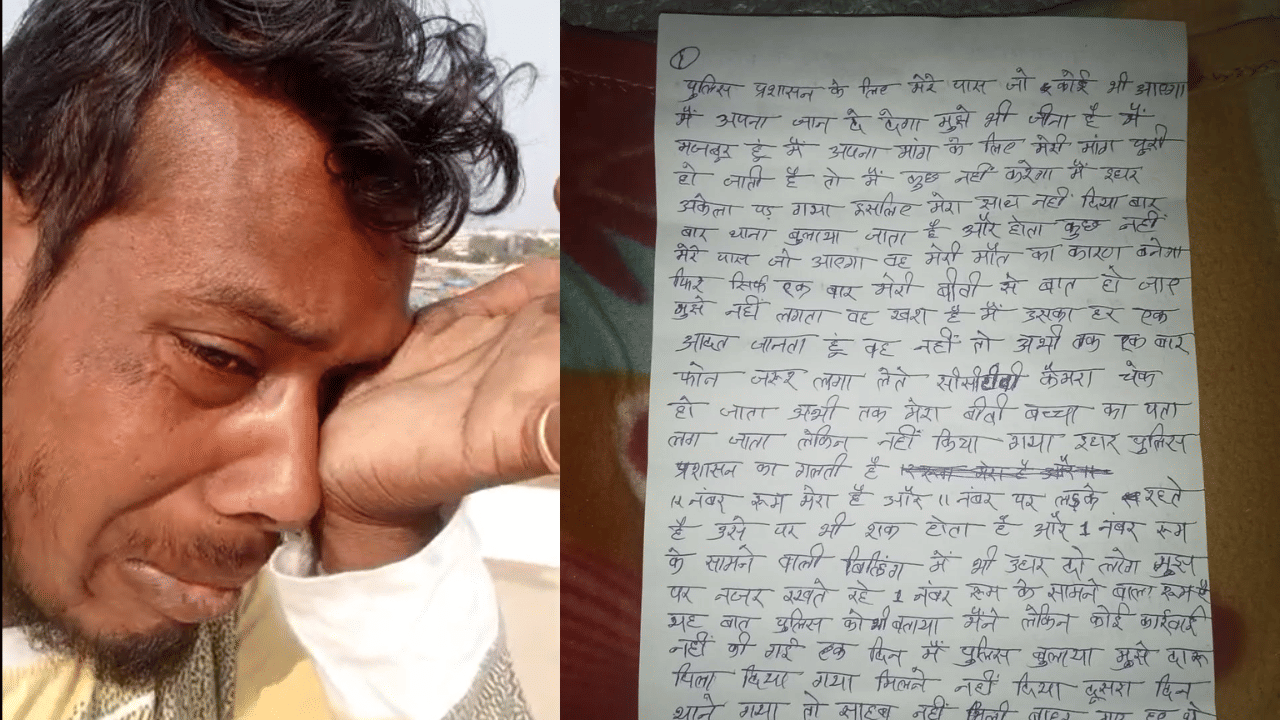 1
पुलिस प्रशासन के लिए मेरे पास जो कोई भी आएगा
मैं अपना जान दे देगा मुझे भी जीना है मैं
मजबुर हूं मैं अपना मांग के लिए मेरी मांग पुरी
हो जाती है तो मैं कुछ नहीं करेगा मैं इधर
अकेला पड़ गया इसलिए मेरा साथ नहीं दिया बार
बार थाना बुलाया जाता है और होता कुछ नहीं
मेरे पास जो आएगा वह मेरी मौत का कारण बनेगा
फिर सिर्फ एक बार मेरी बीवी से बात हो जाए
मुझे नहीं लगता वह खुश है मैं उसका हर एक
आदत जानता हूं वह नहीं तो अभी तक एक बार
फोन जरूर लगा लेते सीसीटीवी कैमरा चेक
हो जाता अभी तक मेरा बीवी बच्चा का पता
लग जाता लेकिन नहीं किया गया इधर पुलिस
प्रशासन का गलती है
नंबर रूम मेरा है और 11 नंबर पर लड़के रहते
है उसे पर भी शक होता है और 1 नंबर रूम
के सामने वाली बिल्डिंग में भी उधर दो लोग मुझ
पर नजर रखते रहे 1 नंबर रूम के सामने वाला रूम है
यह बात पुलिस को भी बताया मैंने लेकिन कोई कार्रवाई
नहीं की गई एक दिन में पुलिस बुलाया मुझे दारू
पिला दिया गया मिलने नहीं दिया दूसरा दिन
थाने गया तो साहब नहीं मिली